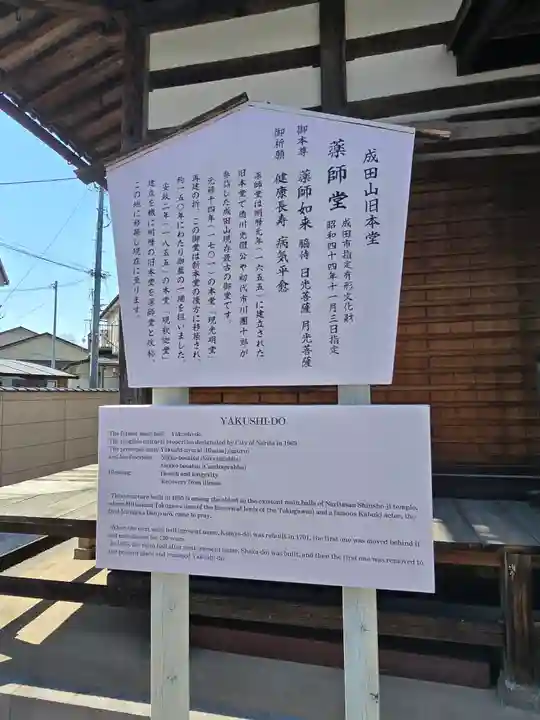 成田山旧本堂
薬師堂
成田市指定有形文化財
昭和四十四年十一月三日指定
御本尊 薬師如来 脇侍 日光菩薩 月光菩薩
御祈願 健康長寿 病気平癒
薬師堂は明暦元年(一六五五)に建立された
旧本堂で徳川光圀公や初代市川團十郎が
参詣した成田山現存最古の御堂です。
元禄十四年(一七〇一)の本堂「現光明堂」
再建の折、この御堂は新本堂の後方に移築され、
約一五〇年にわたり伽藍の一端を担いました。
安政二年(一八五五)の本堂「現釈迦堂」
建立を機に明暦の旧本堂を薬師堂と改称、
この地に移築し現在に至ります。
YAKUSHI-DŌ
The former main hall Yakushi-do
The tangible cultural properties designated by City of Narita in 1969
The principal image Yakushi nyorai
and
Nikko-bosatsu
Gakko-bosatsu
Blessing: Health and longevity
Recovery from illness
This structure built in 1655 is among the oldest in the existent main halls of Naritasan Shinsho-ji temple,
where Mitsukuni Tokugawa (one of the feudal lords of the Tokugawas) and a famous Kabuki actor, the
first Ichikawa Danjuro, came to pray.
When the next main hall (present name, Komyo-do) was rebuilt in 1701, the first one was moved behind it
and
In 1855, the main hall after next (present name, Shaka-do) was built, and then the first one was removed to
the present place and renamed Yakushi-do.